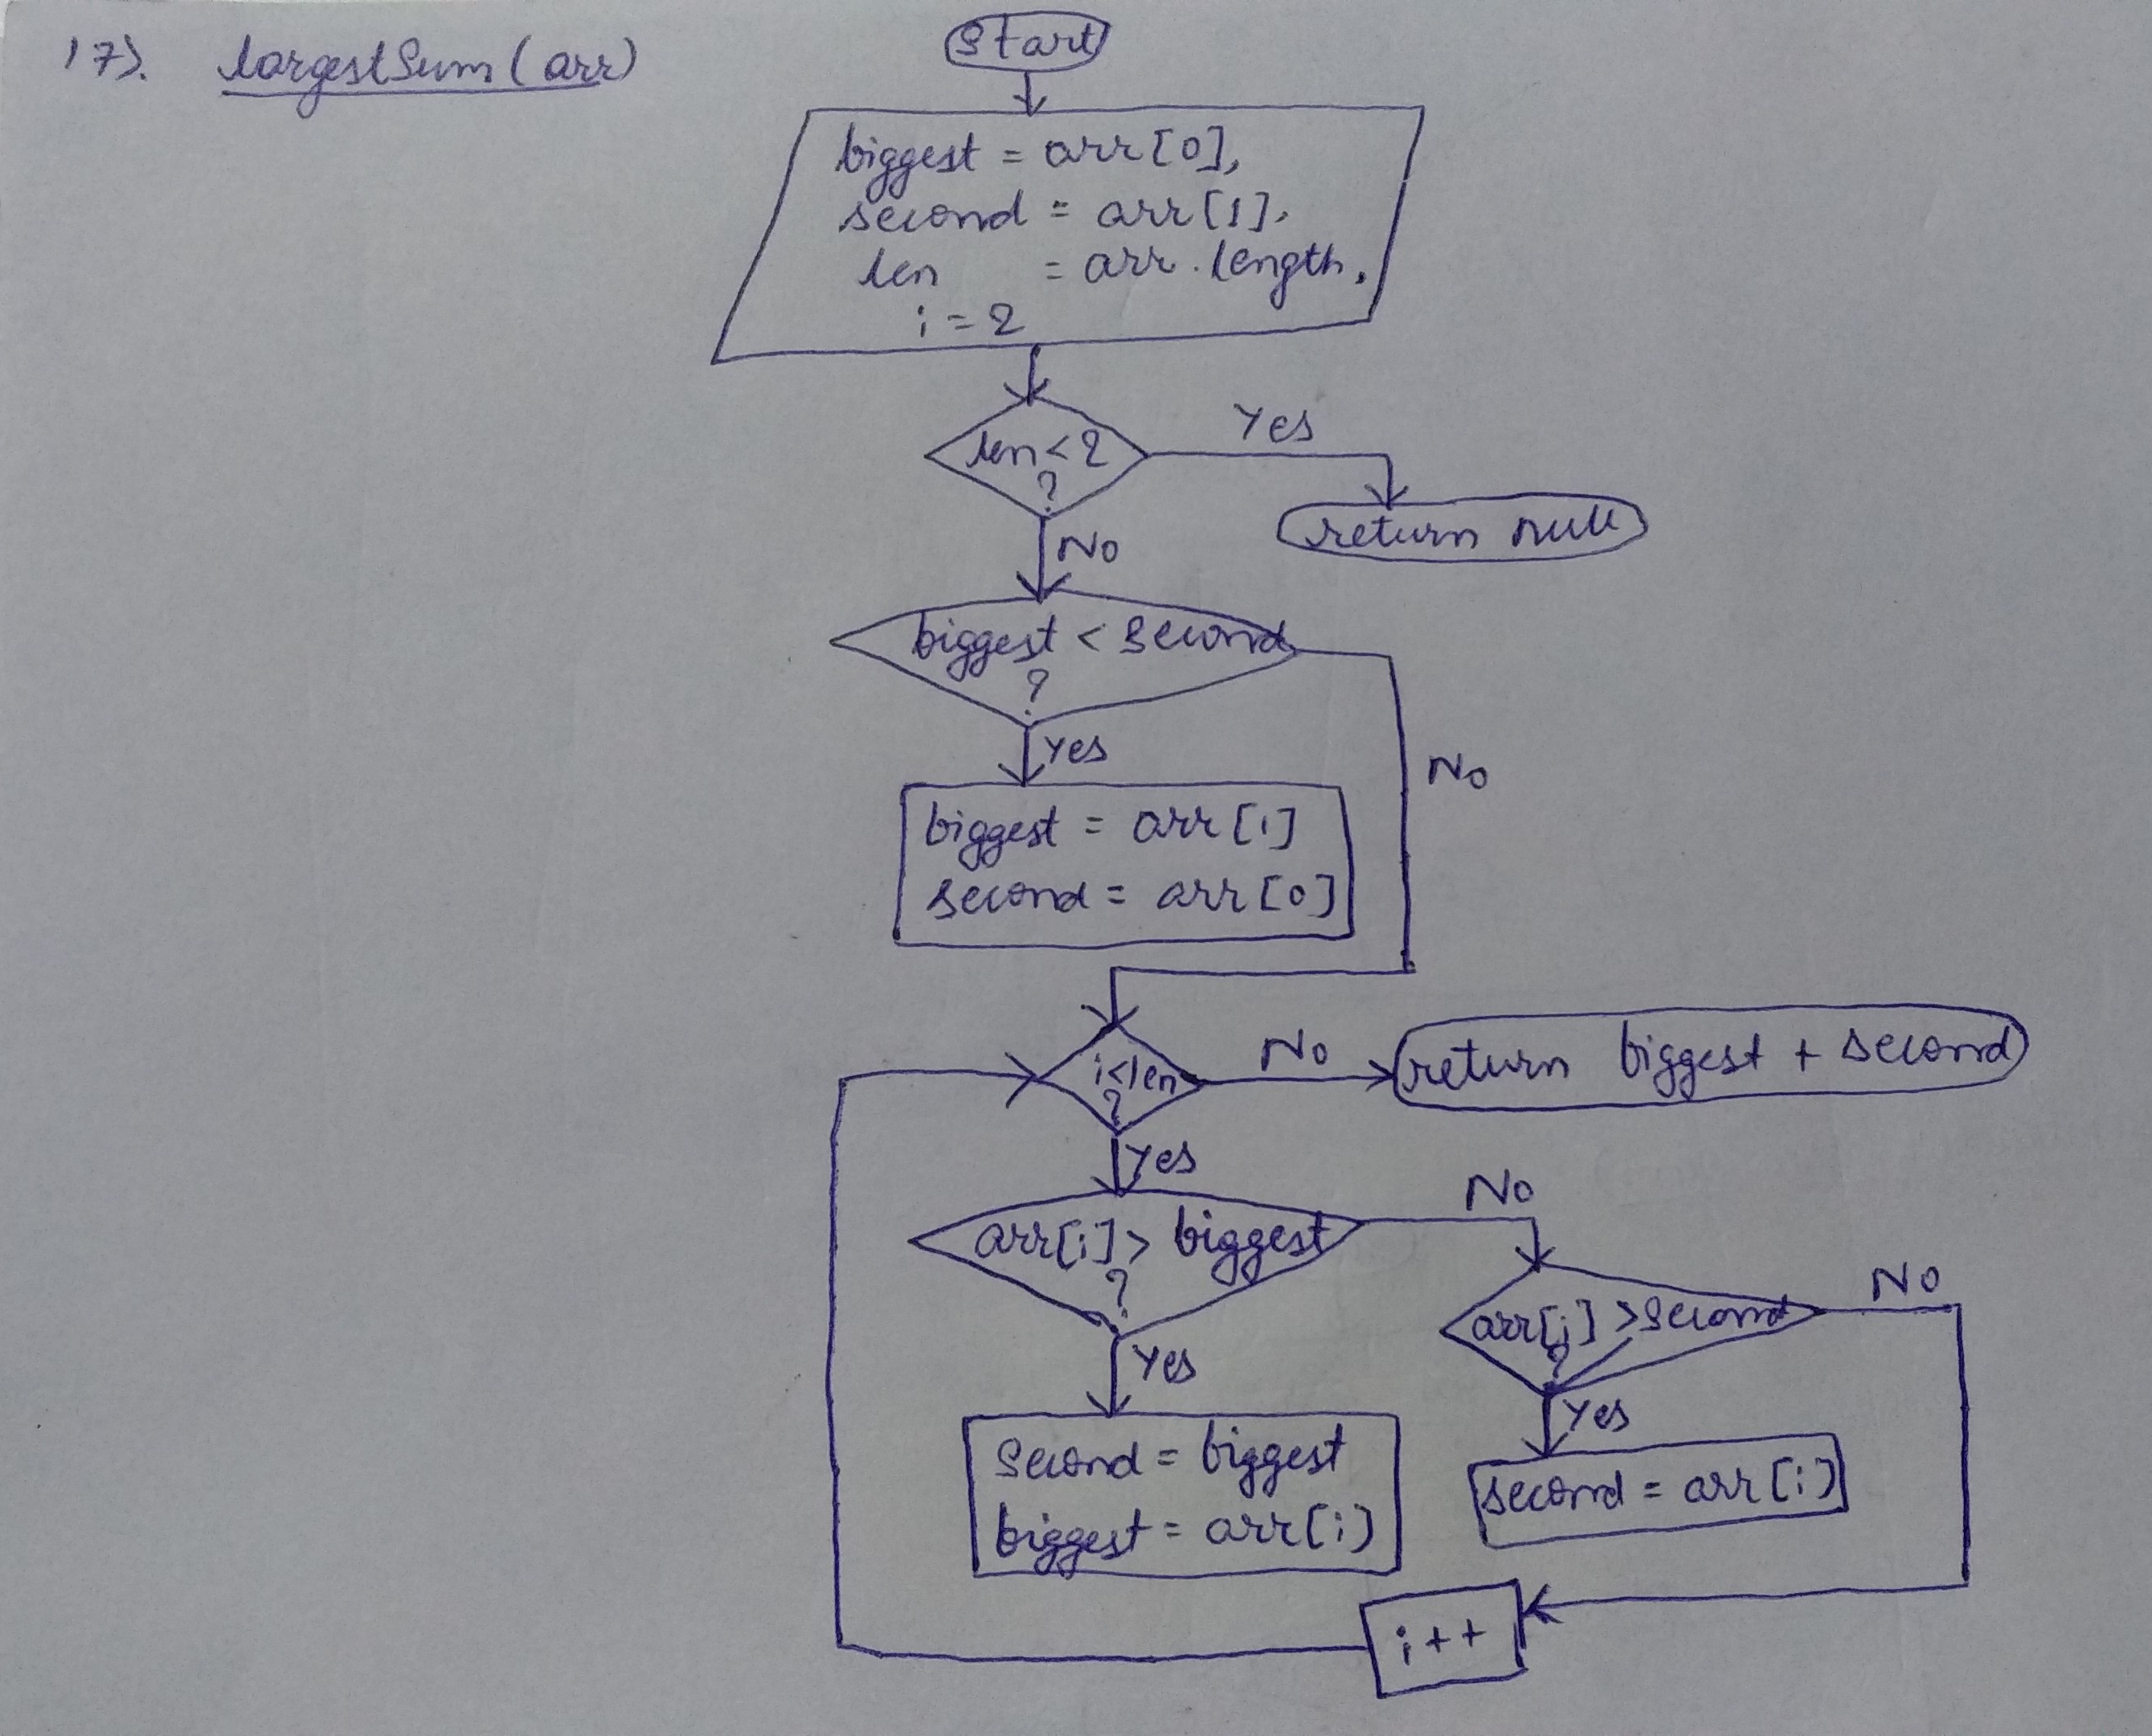 17). largestSum(arr)
Start
biggest = arr[0],
second = arr[1],
len = arr.length,
i = 2
len < 2
?
Yes
return null
No
biggest < second
?
Yes
No
biggest = arr[1]
second = arr[0]
i<len
?
No
return biggest + second
Yes
arr[i] > biggest
?
No
arr[i] > second
?
No
Yes
Yes
second = biggest
biggest = arr[i]
second = arr[i]
i++